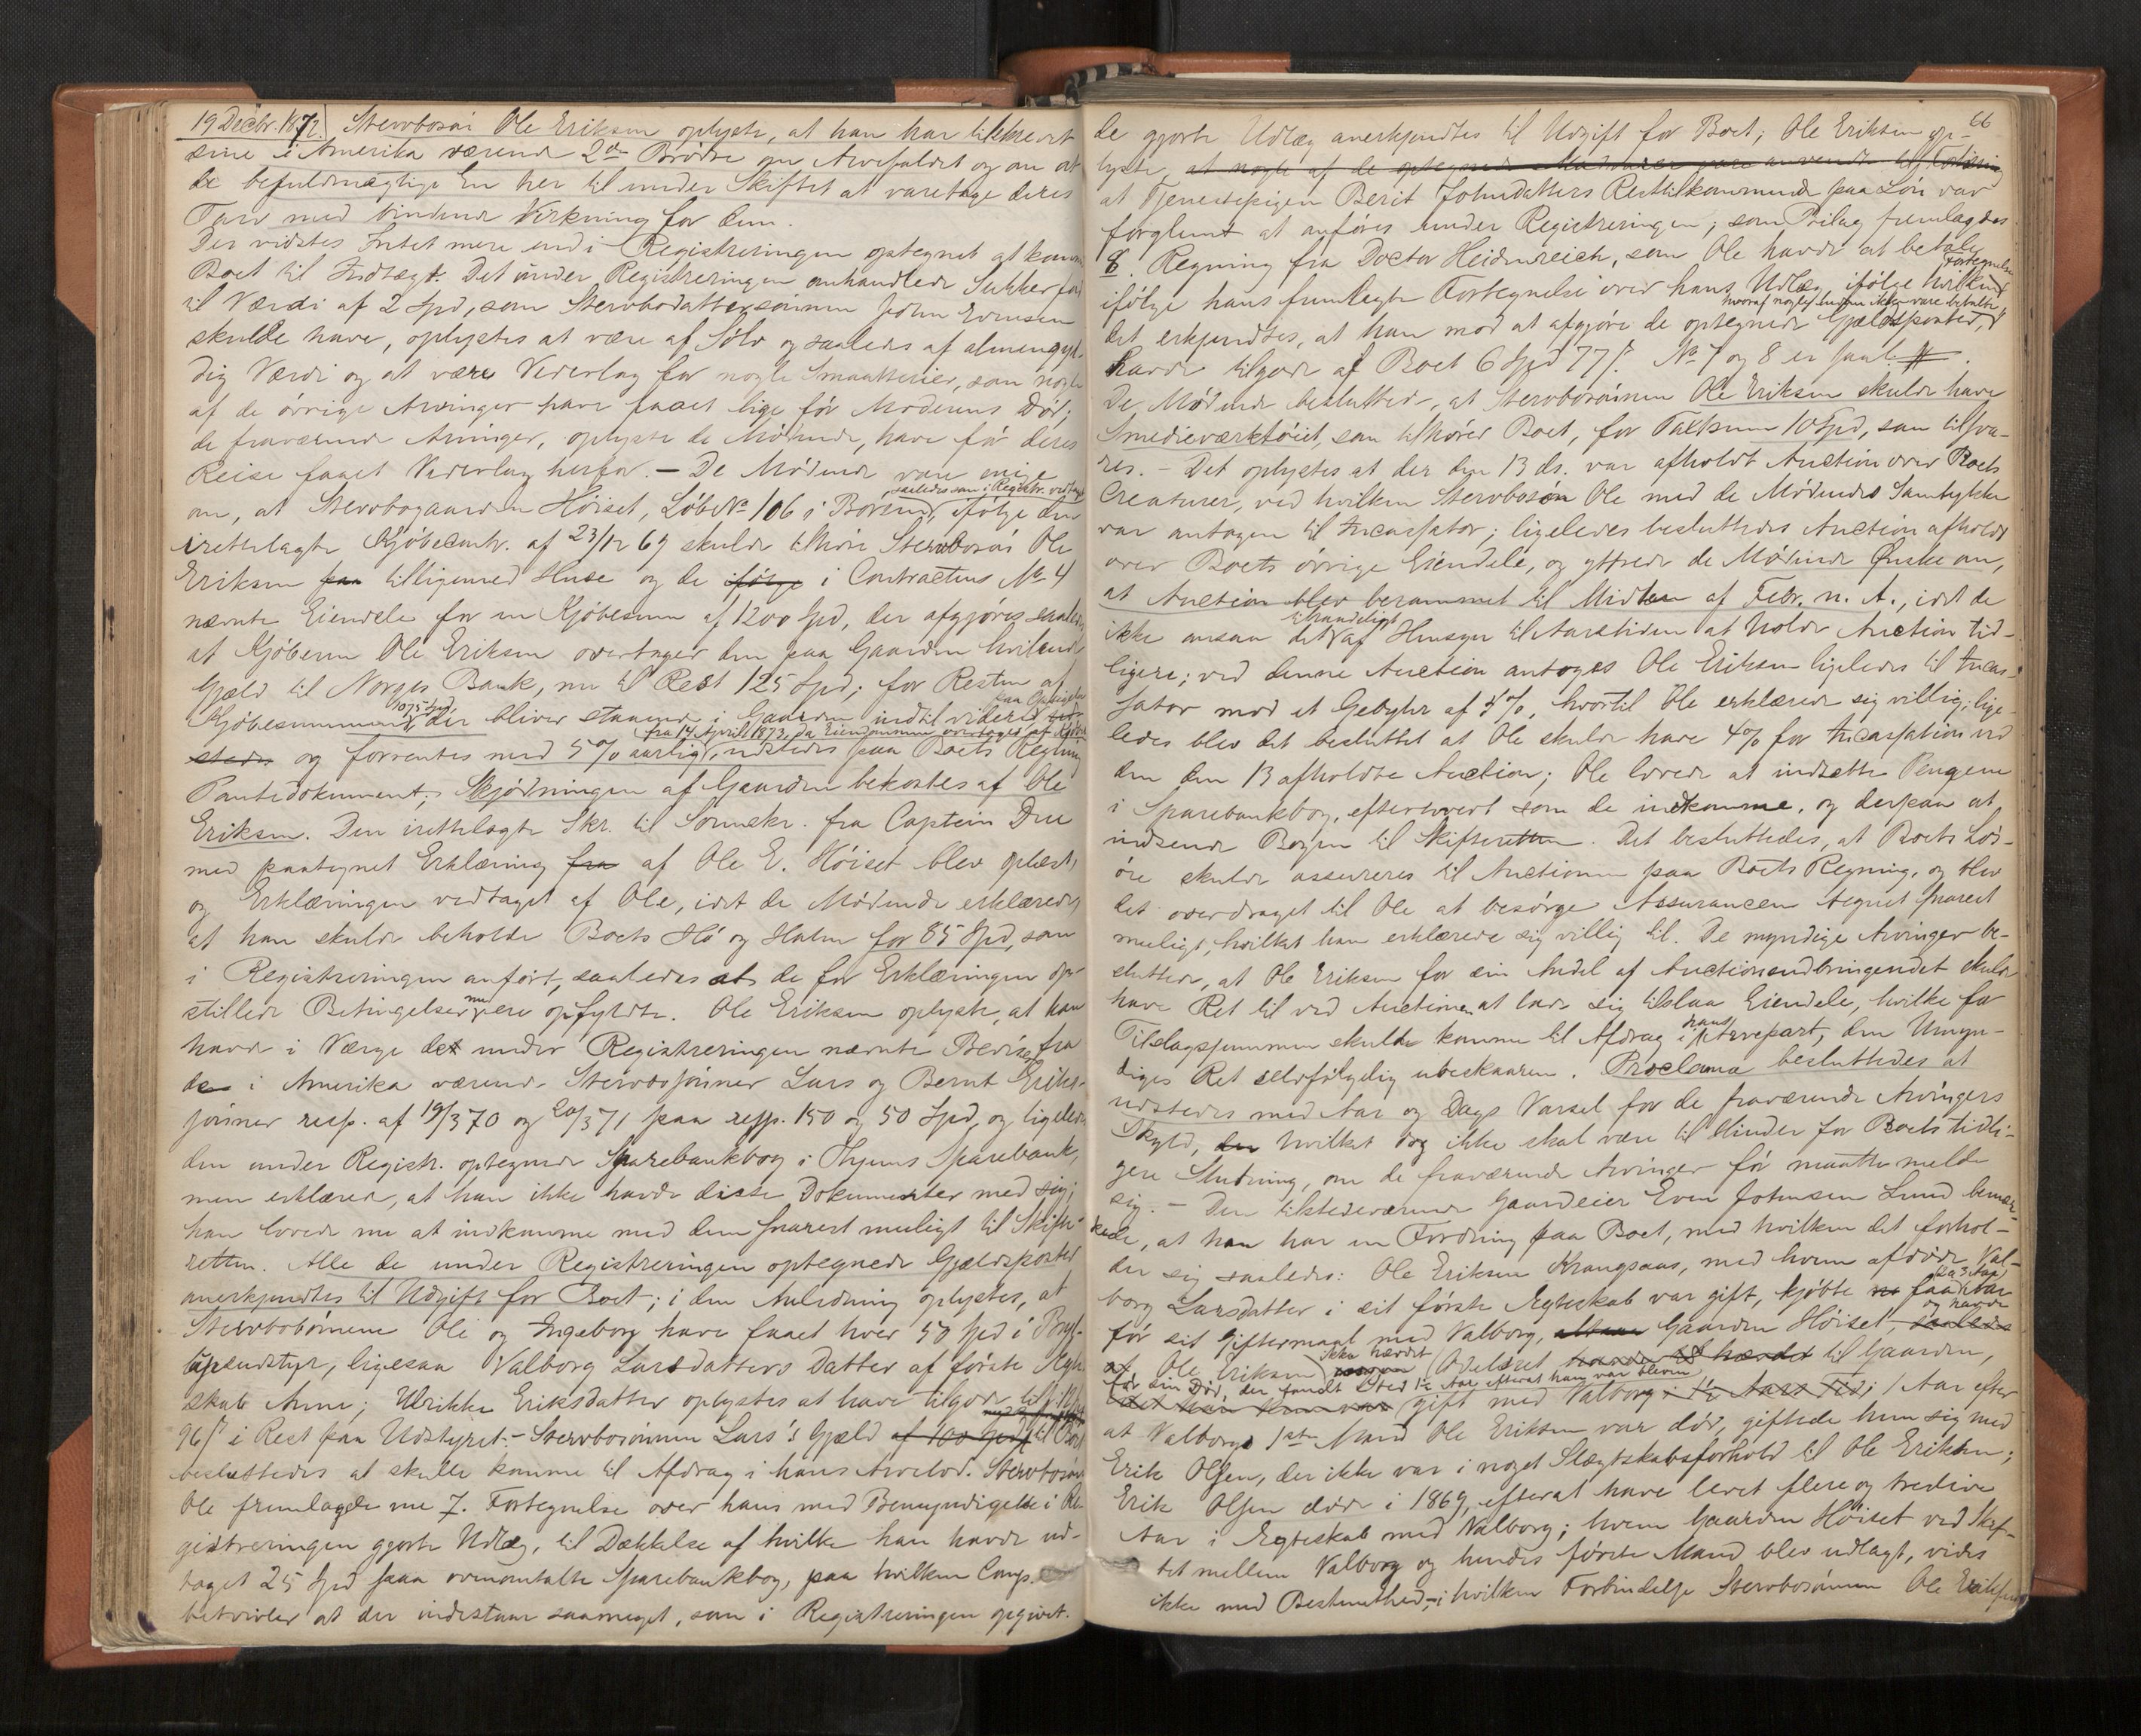 19 Decbr. 1872. Stervbosøn Ole Eriksen oplyste, at han har tilskrevet
sine i Amerika værende 2de Brødre om Arvefaldet og om at
de befuldmægtige En her til under Skiftet at varetage deres
Tarv med bindende Virkning for dem.
Der vidstes Intet mere end i Registreringen optegnet at komme
Boet til Indtægt. Det under Registreringen omhandlede Sukkerfad
til Værdi af 2 Spd, som Stervbodattersønnen John Evensen
skulde have, oplystes at være af Sølv og saaledes af almengyl-
dig Værdi og at være Vederlag for nogle Smaatterier, som nogle
af de øvrige Arvinger have faaet lige før Moderens Død;
de fraværende Arvinger, oplyste de Mødende, have før deres
Reise faaet Vederlag herfor. – De Mødende vare enige
saaledes som i Registr. vedtaget
om, at Stervbogaarden Høiset, Løbe No 106 i Børsen, ifølge den
irettelagte Kjøbecontr. af 23/12 69 skulde tilhøre Stervbosøn Ole
Eriksen paa tilligemed Huse og de ifølge i Contractens No 4
nævnte Eiendele for en Kjøbesum af 1200 Spd, der afgjøres saaledes
at Kjøberen Ole Eriksen overtager den paa Gaarden hvilende
Gjæld til Norges Bank, nu til Rest 125 Spd; for Resten af
1075 Spd paa Opsigelse
Kjøbesummen, der bliver staaende i Gaarden indtil videre
fra 14 April 1873, da Eiendommen overtages af Kjøber
og forrentes med 5% aarlig, udstedes paa Boets Regning
Pantedokument; Skjødningen af Gaarden bekostes af Ole
Eriksen. Den irettelagte Skr. til Sorenskr. fra Captein Due
med paategnet Erklæring fra af Ole E. Høiset blev oplæst,
og Erklæringen vedtaget af Ole, idet de Mødende erklærede,
at han skulde beholde Boets Hø og Halm for 85 Spd, som
i Registreringen anført, saaledes at de for Erklæringen op-
stillede Betingelser nu ere opfyldte. Ole Eriksen oplyste, at han
havde i Værge det under Registreringen nævnte Beviser fra
de i Amerika værende Stervbosønner Lars og Bernt Eriks-
sønner resp. af 19/3 70 og 20/3 71 paa resp. 150 og 50 Spd, og ligeledes
den under Registr. optegnede Sparebankbog i Thjems Sparebank,
men erklærede, at han ikke havde disse Dokumenter med sig;
han lovede nu at indkomme med dem snarest muligt til Skifte-
retten. Alle de under Registreringen optegnede Gjældsposter
anerkjendtes til Udgift for Boet; i den Anledning oplystes, at
Stervbobørnene Ole og Ingeborg have faaet hver 50 Spd i Bryl-
lupsudstyr, ligesaa Valborg Larsdatters Datter af første Ægte-
skab Anne; Ulrikke Eriksdatter oplystes at have tilgode
96 s i Rest paa Udstyret. – Stervbosønnen Lars's Gjæld af 100 Spd til Boet
besluttedes at skulle komme til Afdrag i hans Arvelod. Stervbosøn
Ole fremlagde nu 7. Fortegnelse over hans med Bemyndigelse i Re-
gistreringen gjorte Udlæg, til Dækkelse af hvilke han havde ud-
taget 25 Spd paa ovenomtalte Sparebankbog, paa hvilken Comp.
betvivler at der indestaar saameget, som i Registreringen opgivet.
66
de gjorte Udlæg anerkjendtes til Udgift for Boet; Ole Eriksen op-
lyste, at nogle af de optegnede Madvarer vare anvendte til
at Tjenestepigen Berit Johnsdatters Resttilkommende paa Løn var
forglemt at anføres under Registreringen; som Bilag fremlagdes
8. Regning fra Doctor Heidenreich, som Ole havde at betale
Fortegnelse
ifølge hans fremlagte Fortegnelse over hans Udlæg, ifølge hvilken
hvoraf nogle endnu ikke vare betalte,
det erkjendtes, at han mod at afgjøre de optegnede Gjældsposter,
havde tilgode af Boet 6 Spd 77 s. No 7 og 8 er saal.
De Mødende besluttede, at Stervbosønnen Ole Eriksen skulde have
Smedieværktøiet, som tilhører Boet, for Taxtsum 10 Spd, som tilsva-
res. – Det oplystes at der den 13 ds. var afholdt Auction over Boets
Creaturer, ved hvilken Stervbosøn Ole med de Mødendes Samtykke
var antagen til Incassator; ligeledes besluttedes Auction afholdt
over Boets øvrige Eiendele, og yttrede de Mødende Ønske om,
at Auction blev berammet til Midten af Febr. n. A., idet de
tilraadeligt
ikke ansaa det af Hensyn til Aarstiden at holde Auction tid-
ligere; ved denne Auction antoges Ole Eriksen ligeledes til Incas-
sator mod et Gebyhr af 4%, hvortil Ole erklærede sig villig; lige-
ledes blev det besluttet at Ole skulde have 4% for Incassation ved
den den 13 afholdte Auction; Ole lovede at indsætte Pengene
i Sparebankbog, eftersom de indkomme, og derpaa at
indsende Bogen til Skifteretten. Det besluttedes, at Boets Løs-
øre skulde assureres til Auctionen paa Boets Regning, og blev
det overdraget til Ole at besørge Assurancen tegnet snarest
muligt, hvilket han erklærede sig villig til. De myndige Arvinger be-
sluttede, at Ole Eriksen for sin Andel af Auctionsudbringendet skulde
have Ret til ved Auctionen at lade sig tilslaa Eiendele, hvilke for
Tilslagssummen skulde komme til Afdrag i hans Arvepart, den Umyn-
diges Ret selvfølgelig ubeskaaren. Proclama besluttedes at
udstedes med Aar og Dags Varsel for de fraværende Arvingers
Skyld, der hvilket dog ikke skal være til Hinder for Boets tidli-
gere Slutning, om de fraværende Arvinger før maatte melde
sig. – Den tilstedeværende Gaardeier Even Johnsen Lund bemær-
kede, at han har en Fordring paa Boet, med hvilken det forhol-
der sig saaledes: Ole Eriksen Krangsaas, med hvem afdøde Val-
2 a 3 Aar
borg Larsdatter i sit første Ægteskab var gift, kjøbte
og havde
før sit Giftermaal med Valborg, Gaarden Høiset,
ikke hævdet
at Ole Eriksen Odelsret til Gaarden,
før sin Død, der fandt Sted 1½ Aar efterat han var bleven
gift med Valborg i 1½ Aars Tid; 1 Aar efter
at Valborgs 1ste Mand Ole Eriksen var død, giftede hun sig med
Erik Olsen, der ikke var i noget Slægtskabsforhold til Ole Eriksen;
Erik Olsen døde i 1869, efterat have levet flere og tredive
Aar i Ægteskab med Valborg; hvem Gaarden Høiset ved Skif-
tet mellem Valborg og hendes første Mand blev udlagt, vides
ikke med Bestemthed, i hvilken Forbindelse Stervbosønnen Ole Eriksen